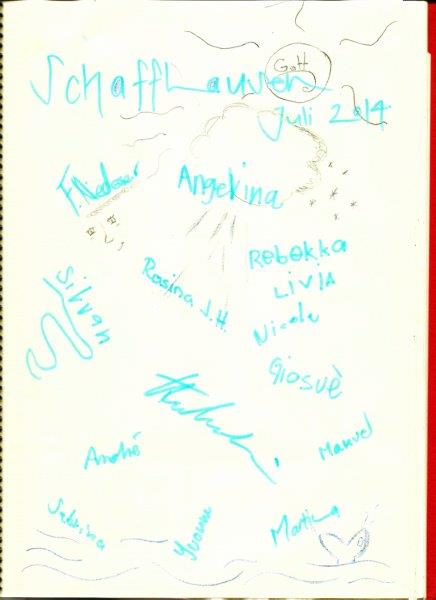 Gott
Schaffhausen
Juli 2014
Angelina
Rebekka
Livia
Silvan
Rosina J.H.
Nicole
Giosuè
André
Manuel
Sabrina
Yvonne
Martina